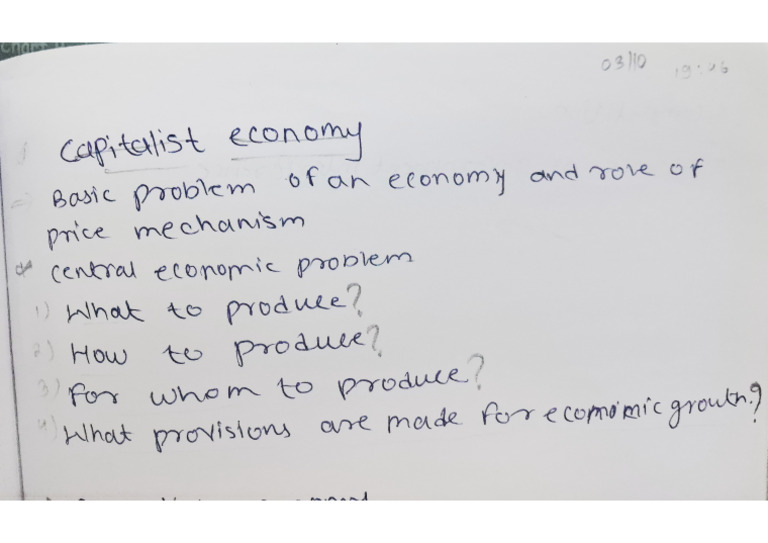 03/10 19:06
Capitalist economy
Basic problem of an economy and role of
price mechanism
* central economic problem
1) What to produce?
2) How to produce?
3) For whom to produce?
4) What provisions are made for ecomomic growth.?